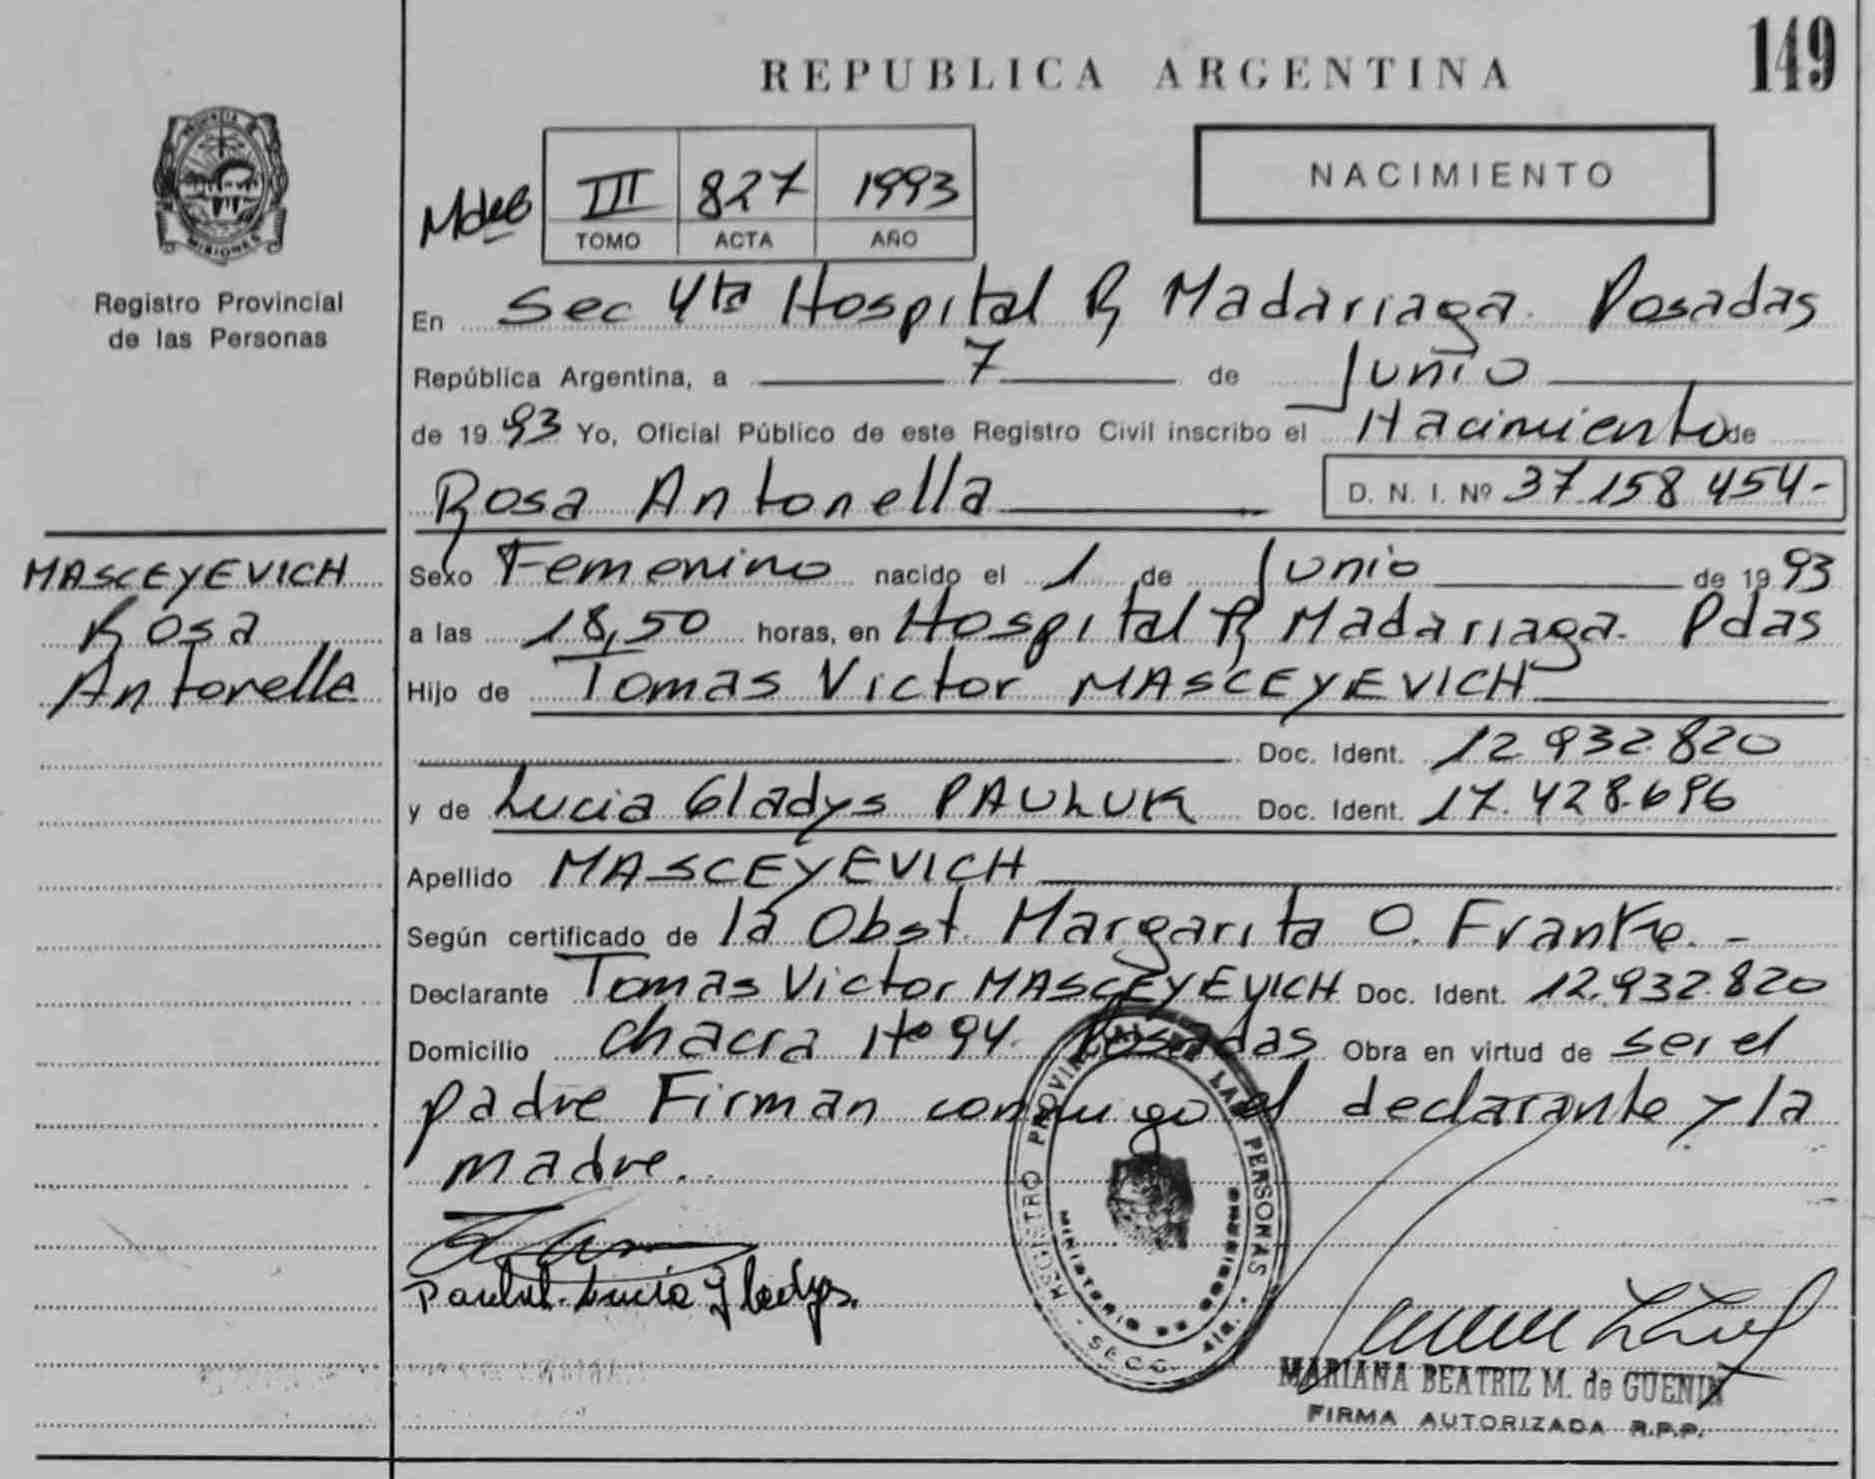 149
REPUBLICA ARGENTINA
PROVINCIA DE
MISIONES
Registro Provincial
de las Personas
III 827 1993
TOMO ACTA AÑO
NACIMIENTO
En Sec 4ta Hospital R. Madariaga. Posadas
República Argentina, a 7 de Junio
de 1993 Yo, Oficial Público de este Registro Civil inscribo el Nacimiento de
Rosa Antonella D. N. I. Nº 37.158.454-
MASCEYEVICH
Rosa
Antonella
Sexo Femenino nacido el 1 de Junio de 1993
a las 18,50 horas, en Hospital R. Madariaga. Pdas
Hijo de Tomas Victor MASCEYEVICH
Doc. Ident. 12.932.820
y de Lucia Gladys PAULUK Doc. Ident. 17.428.696
Apellido MASCEYEVICH
Según certificado de la Obst. Margarita O. Franke.-
Declarante Tomas Victor MASCEYEVICH Doc. Ident. 12.932.820
Domicilio Chacra Nº 94. Posadas Obra en virtud de ser el
padre Firman conmigo el declarante y la
madre.
Pauluk Lucia Gladys.
REGISTRO PROVINCIAL DE LAS PERSONAS
MINISTERIO DE GOBIERNO
SECC. 4ta.
MARIANA BEATRIZ M. de GUENIN
FIRMA AUTORIZADA R.P.P.